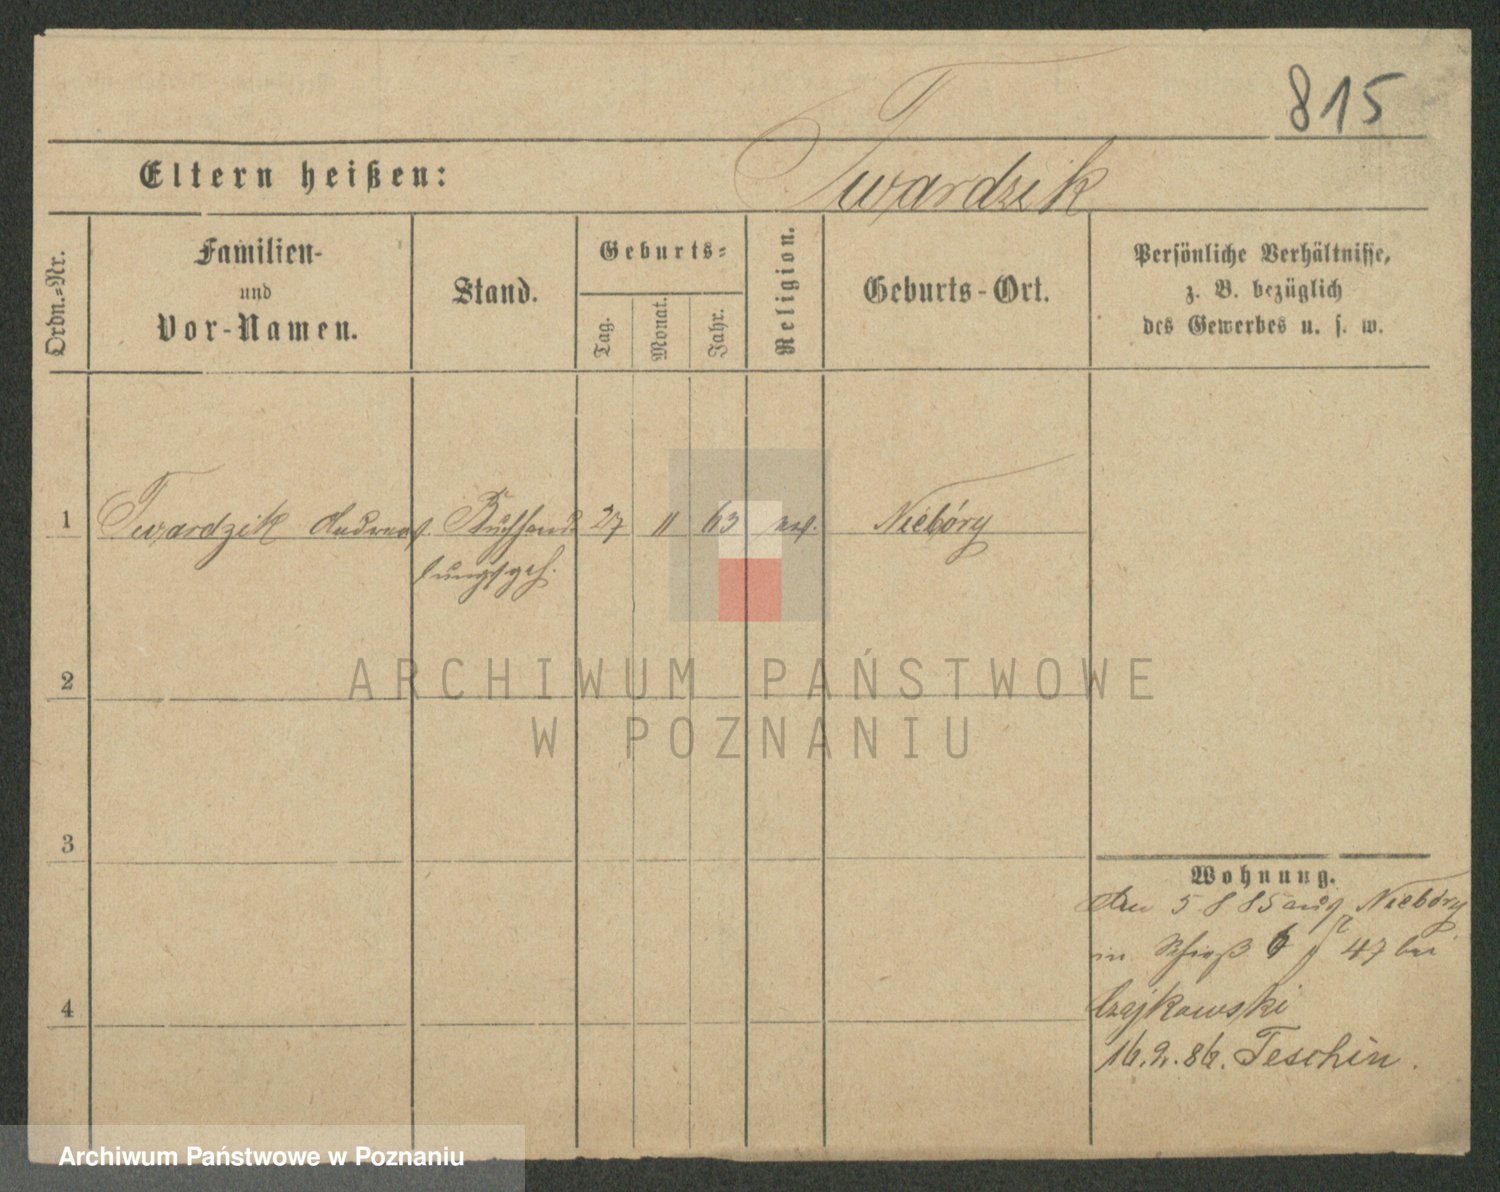 815
Eltern heißen: Twardzik
Ordn.-Nr.
Familien-
und
Vor-Namen.
Stand.
Geburts-
Tag.
Monat.
Jahr.
Religion.
Geburts-Ort.
Persönliche Verhältnisse,
z. B. bezüglich
des Gewerbes u. s. w.
1 Twardzik Andreas. Buchhand 27 11 63 Niebóry
lungsgeh.
2
ARCHIWUM PAŃSTWOWE
W POZNANIU
3
4
Wohnung.
Den 5 8 85 aus Niebóry
in 47 bei
Czajkowski
16.2.86. Teschin.
Archiwum Państwowe w Poznaniu